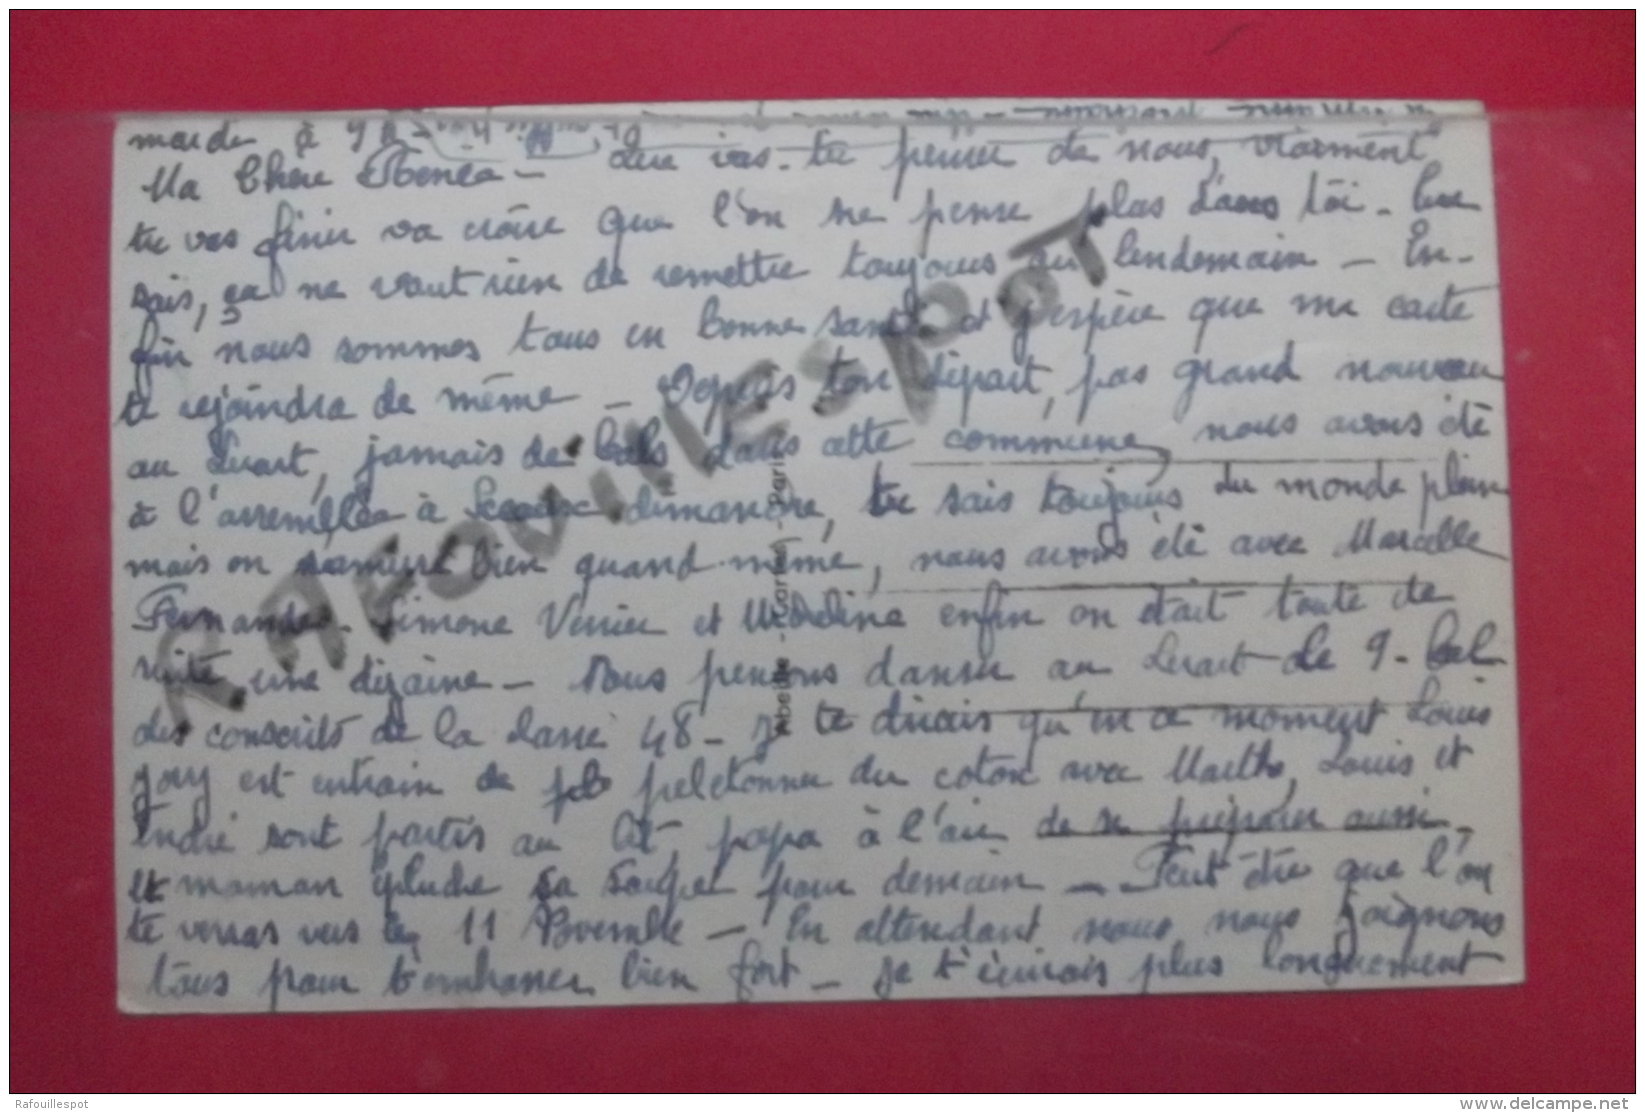 mardi à 9 h -
Ma Chère Renée - Que vas-tu penser de nous, vraiment
tu vas finir va croire que l'on ne pense plus à toi - tu
sais, ça ne vaut rien de remettre toujours au lendemain - En-
fin nous sommes tous en bonne santé et j'espère que ma carte
te rejoindra de même - Depuis ton départ, pas grand nouveau
au Luart, jamais de bals dans cette commune, nous avons été
à l'assemblée à Sceaux dimanche, tu sais toujours du monde plein
mais on s'amuse bien quand même, nous avons été avec Marcelle
Fernande - Simone Verrier et enfin on était toute de
suite une dizaine - Nous pensons danser au Luart le 9 - bal
des conscrits de la classe 48 - Je te dirais qu'en ce moment Louis
est entrain de peletonner du coton avec Marthe, Louis et
André sont partis au lit, papa à l'air de se préparer aussi
et maman épluche sa soupe pour demain - Peut-être que l'on
te verras vers le 11 Novembre - En attendant nous nous joignons
tous pour t'embrasser bien fort - Je t'écrirais plus longuement
Abeille - Cartes - Paris
RAFOUILLESPOT
Rafouillespot
delcampe.net